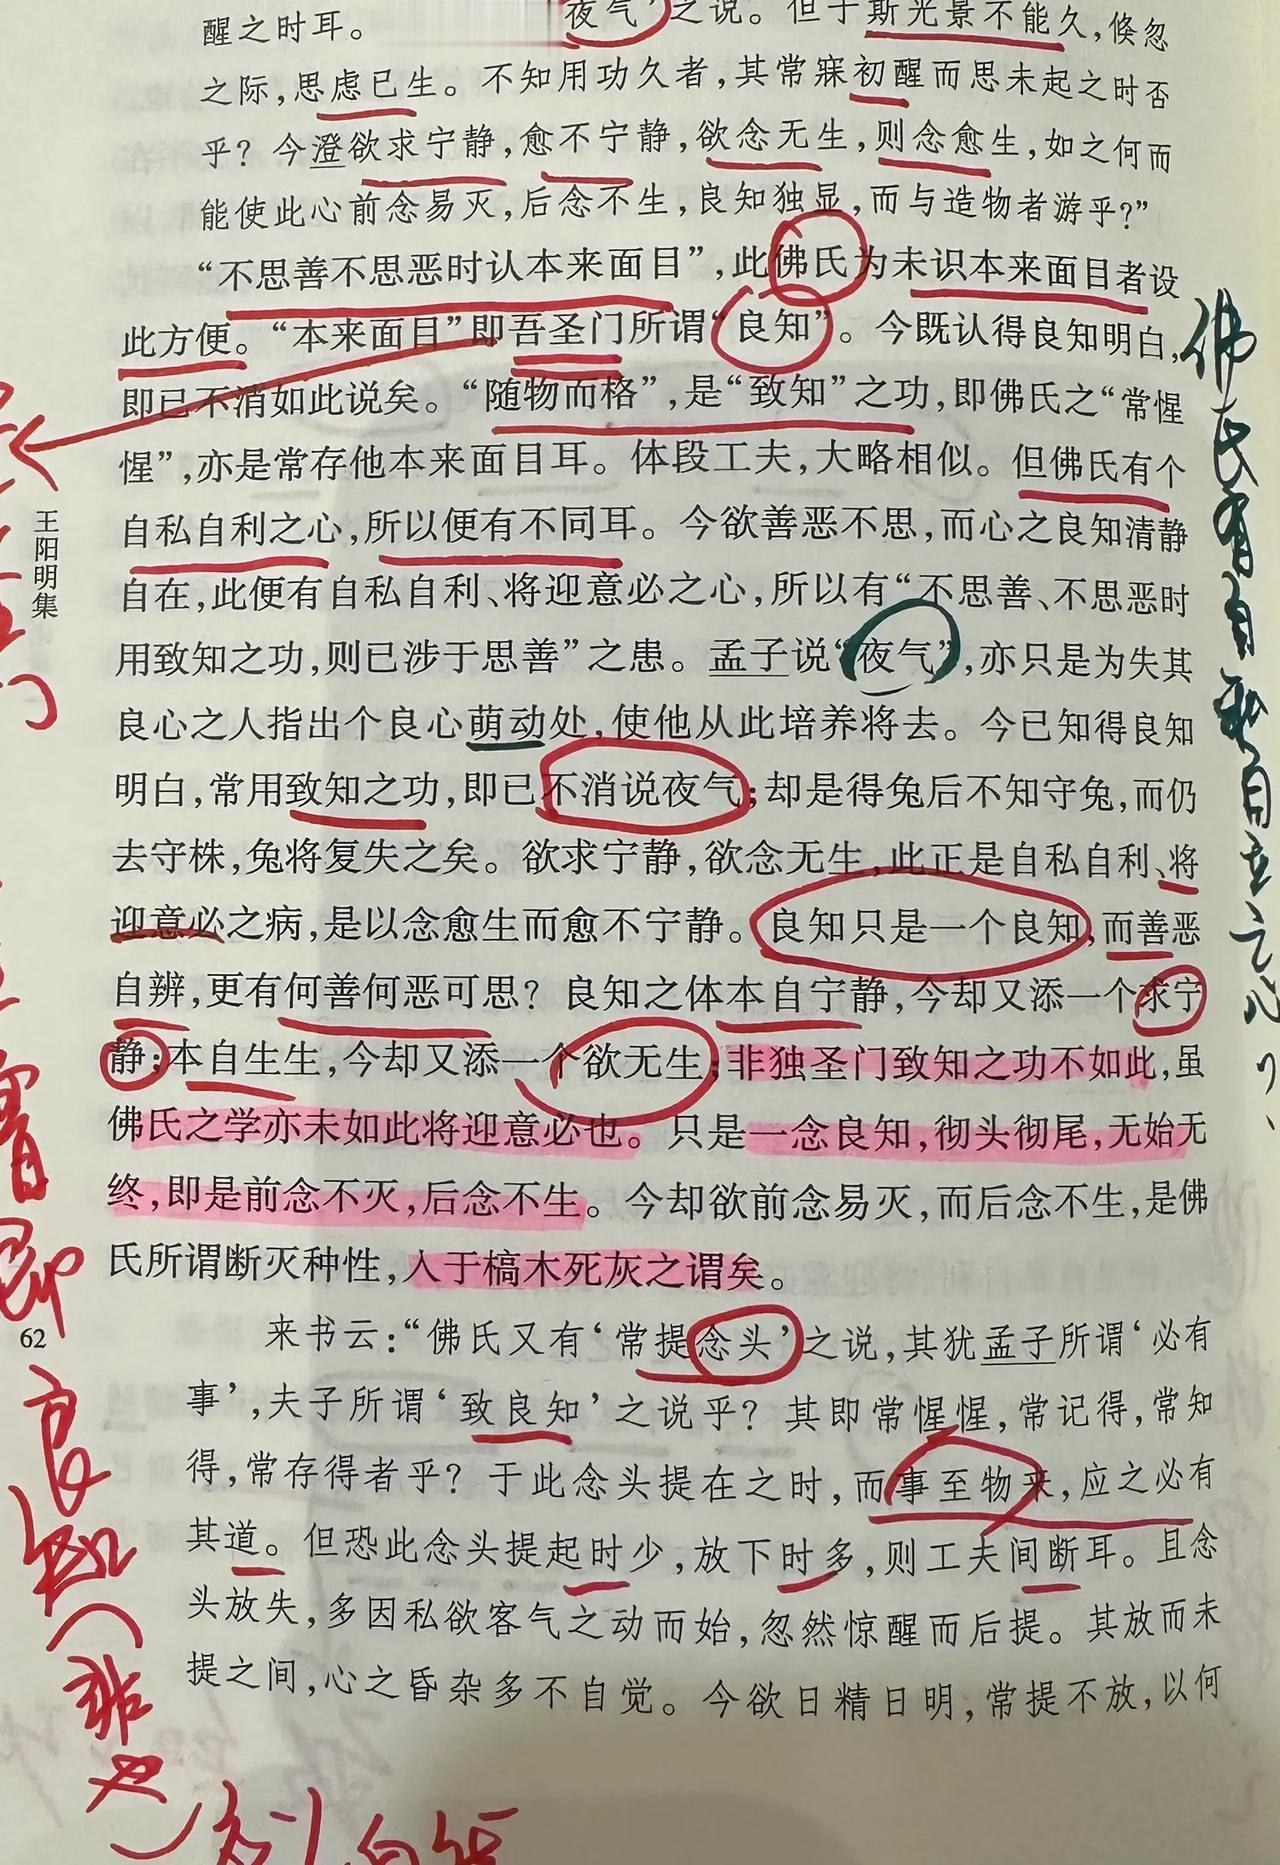 醒之时耳。夜气’之说。但于斯光景不能久，倏忽
之际，思虑已生。不知用功久者，其常寐初醒而思未起之时否
乎？今澄欲求宁静，愈不宁静，欲念无生，则念愈生，如之何而
能使此心前念易灭，后念不生，良知独显，而与造物者游乎？”
“不思善不思恶时认本来面目”，此佛氏为未识本来面目者设
此方便。“本来面目”即吾圣门所谓“良知”。今既认得良知明白，
即已不消如此说矣。“随物而格”，是“致知”之功，即佛氏之“常惺
惺”，亦是常存他本来面目耳。体段工夫，大略相似。但佛氏有个
自私自利之心，所以便有不同耳。今欲善恶不思，而心之良知清静
自在，此便有自私自利、将迎意必之心，所以有“不思善、不思恶时
用致知之功，则已涉于思善”之患。孟子说“夜气”，亦只是为失其
良心之人指出个良心萌动处，使他从此培养将去。今已知得良知
明白，常用致知之功，即已不消说夜气；却是得兔后不知守兔，而仍
去守株，兔将复失之矣。欲求宁静，欲念无生，此正是自私自利、将
迎意必之病，是以念愈生而愈不宁静。良知只是一个良知，而善恶
自辨，更有何善何恶可思？良知之体本自宁静，今却又添一个求宁
静；本自生生，今却又添一个欲无生；非独圣门致知之功不如此，虽
佛氏之学亦未如此将迎意必也。只是一念良知，彻头彻尾，无始无
终，即是前念不灭，后念不生。今却欲前念易灭，而后念不生，是佛
氏所谓断灭种性，入于槁木死灰之谓矣。
来书云：“佛氏又有‘常提念头’之说，其犹孟子所谓‘必有
事’，夫子所谓‘致良知’之说乎？其即常惺惺，常记得，常知
得，常存得者乎？于此念头提在之时，而事至物来，应之必有
其道。但恐此念头提起时少，放下时多，则工夫间断耳。且念
头放失，多因私欲客气之动而始，忽然惊醒而后提。其放而未
提之间，心之昏杂多不自觉。今欲日精日明，常提不放，以何
王阳明集
62
佛氏有自私自立之心
良知